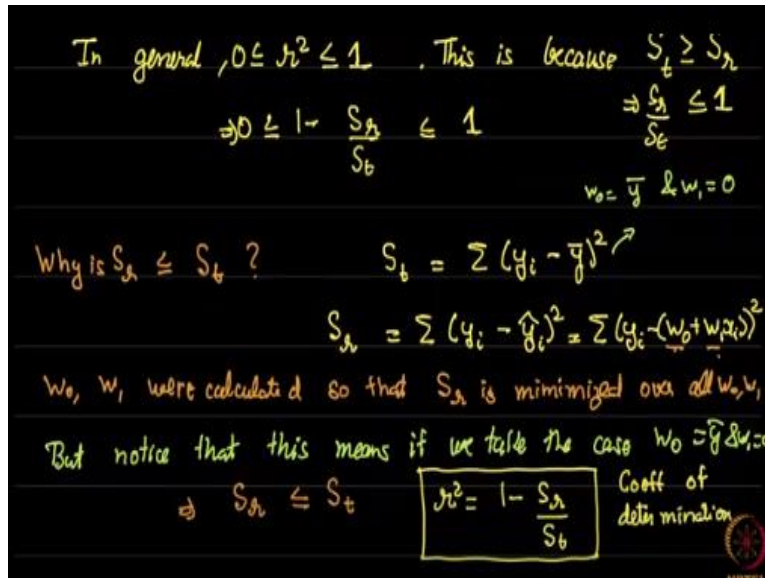 In general, 0 ≤ r² ≤ 1 . This is because S_t ≥ S_r
⇒ 0 ≤ 1 - S_r/S_t ≤ 1 ⇒ S_r/S_t ≤ 1
w₀ = ȳ & w₁ = 0
Why is S_r ≤ S_t ? S_t = Σ (y_i - ȳ)²
S_r = Σ (y_i - ŷ_i)² = Σ (y_i - (w₀ + w₁x_i))²
w₀, w₁ were calculated so that S_r is mimimized over all w₀, w₁
But notice that this means if we take the case w₀ = ȳ & w₁ = 0
⇒ S_r ≤ S_t r² = 1 - S_r/S_t Coeff of
determination